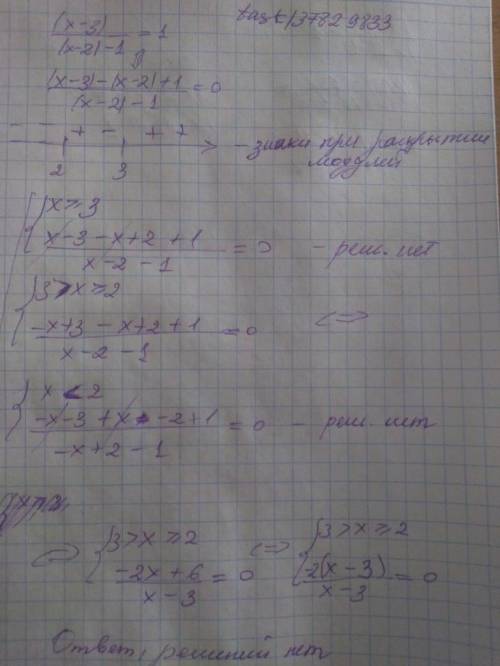 task/137829833
(x-3)/(|x-2|-1) = 1
((x-3)-(x-2)+1)/((x-2)-1) = 0
+ - + + - знаки при раскрытии модулей
2 3
{ x ≥ 3
(x-3-x+2+1)/(x-2-1) = 0 - реш. нет
{ 3 > x ≥ 2
(-x+3-x+2+1)/(x-2-1) = 0 <=>
{ x < 2
(-x-3+x-2+1)/(-x+2-1) = 0 - реш. нет
<=> { 3 > x ≥ 2 <=> { 3 > x ≥ 2
(-2x+6)/(x-3) = 0 (-2(x-3))/(x-3) = 0
Ответ: решений нет